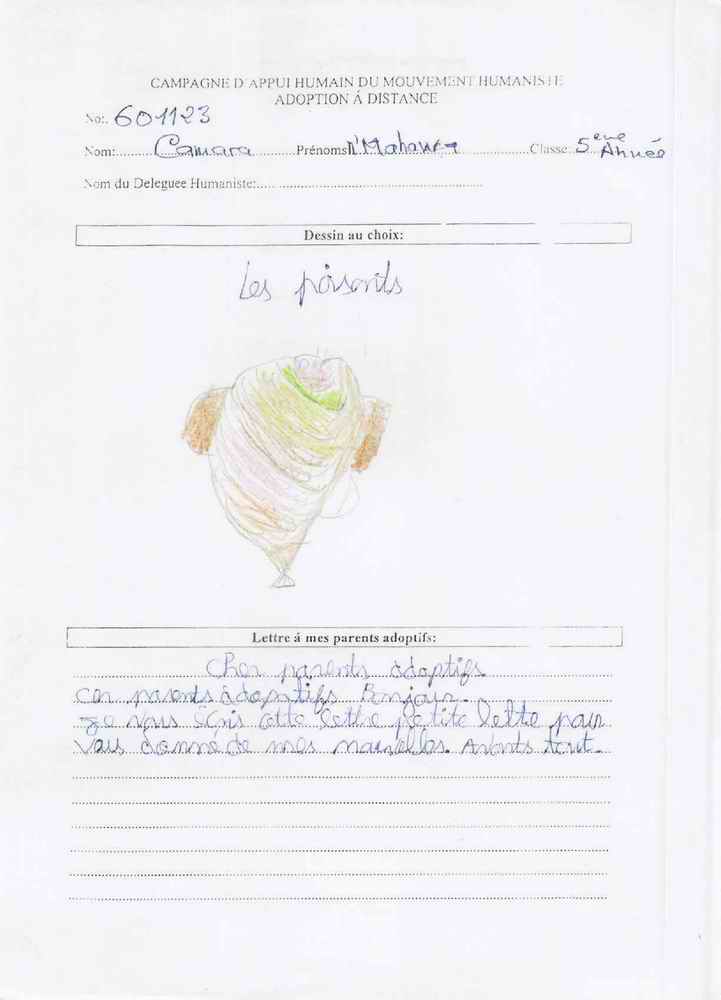 CAMPAGNE D'APPUI HUMAIN DU MOUVEMENT HUMANISTE
ADOPTION Á DISTANCE
No:. 601123
Nom:.........Camara..........Prénoms N'Mahawa..................Classe: 5eme Année
Nom du Deleguee Humaniste:.......................................................
Dessin au choix:
Les poisonts
Lettre á mes parents adoptifs:
Cher parents adoptifs
Cer parents adoptifs Bonjour.
Je vous écris cette lettre petite lettre pour
Vous donné de mes nouvelles. Avants tout.